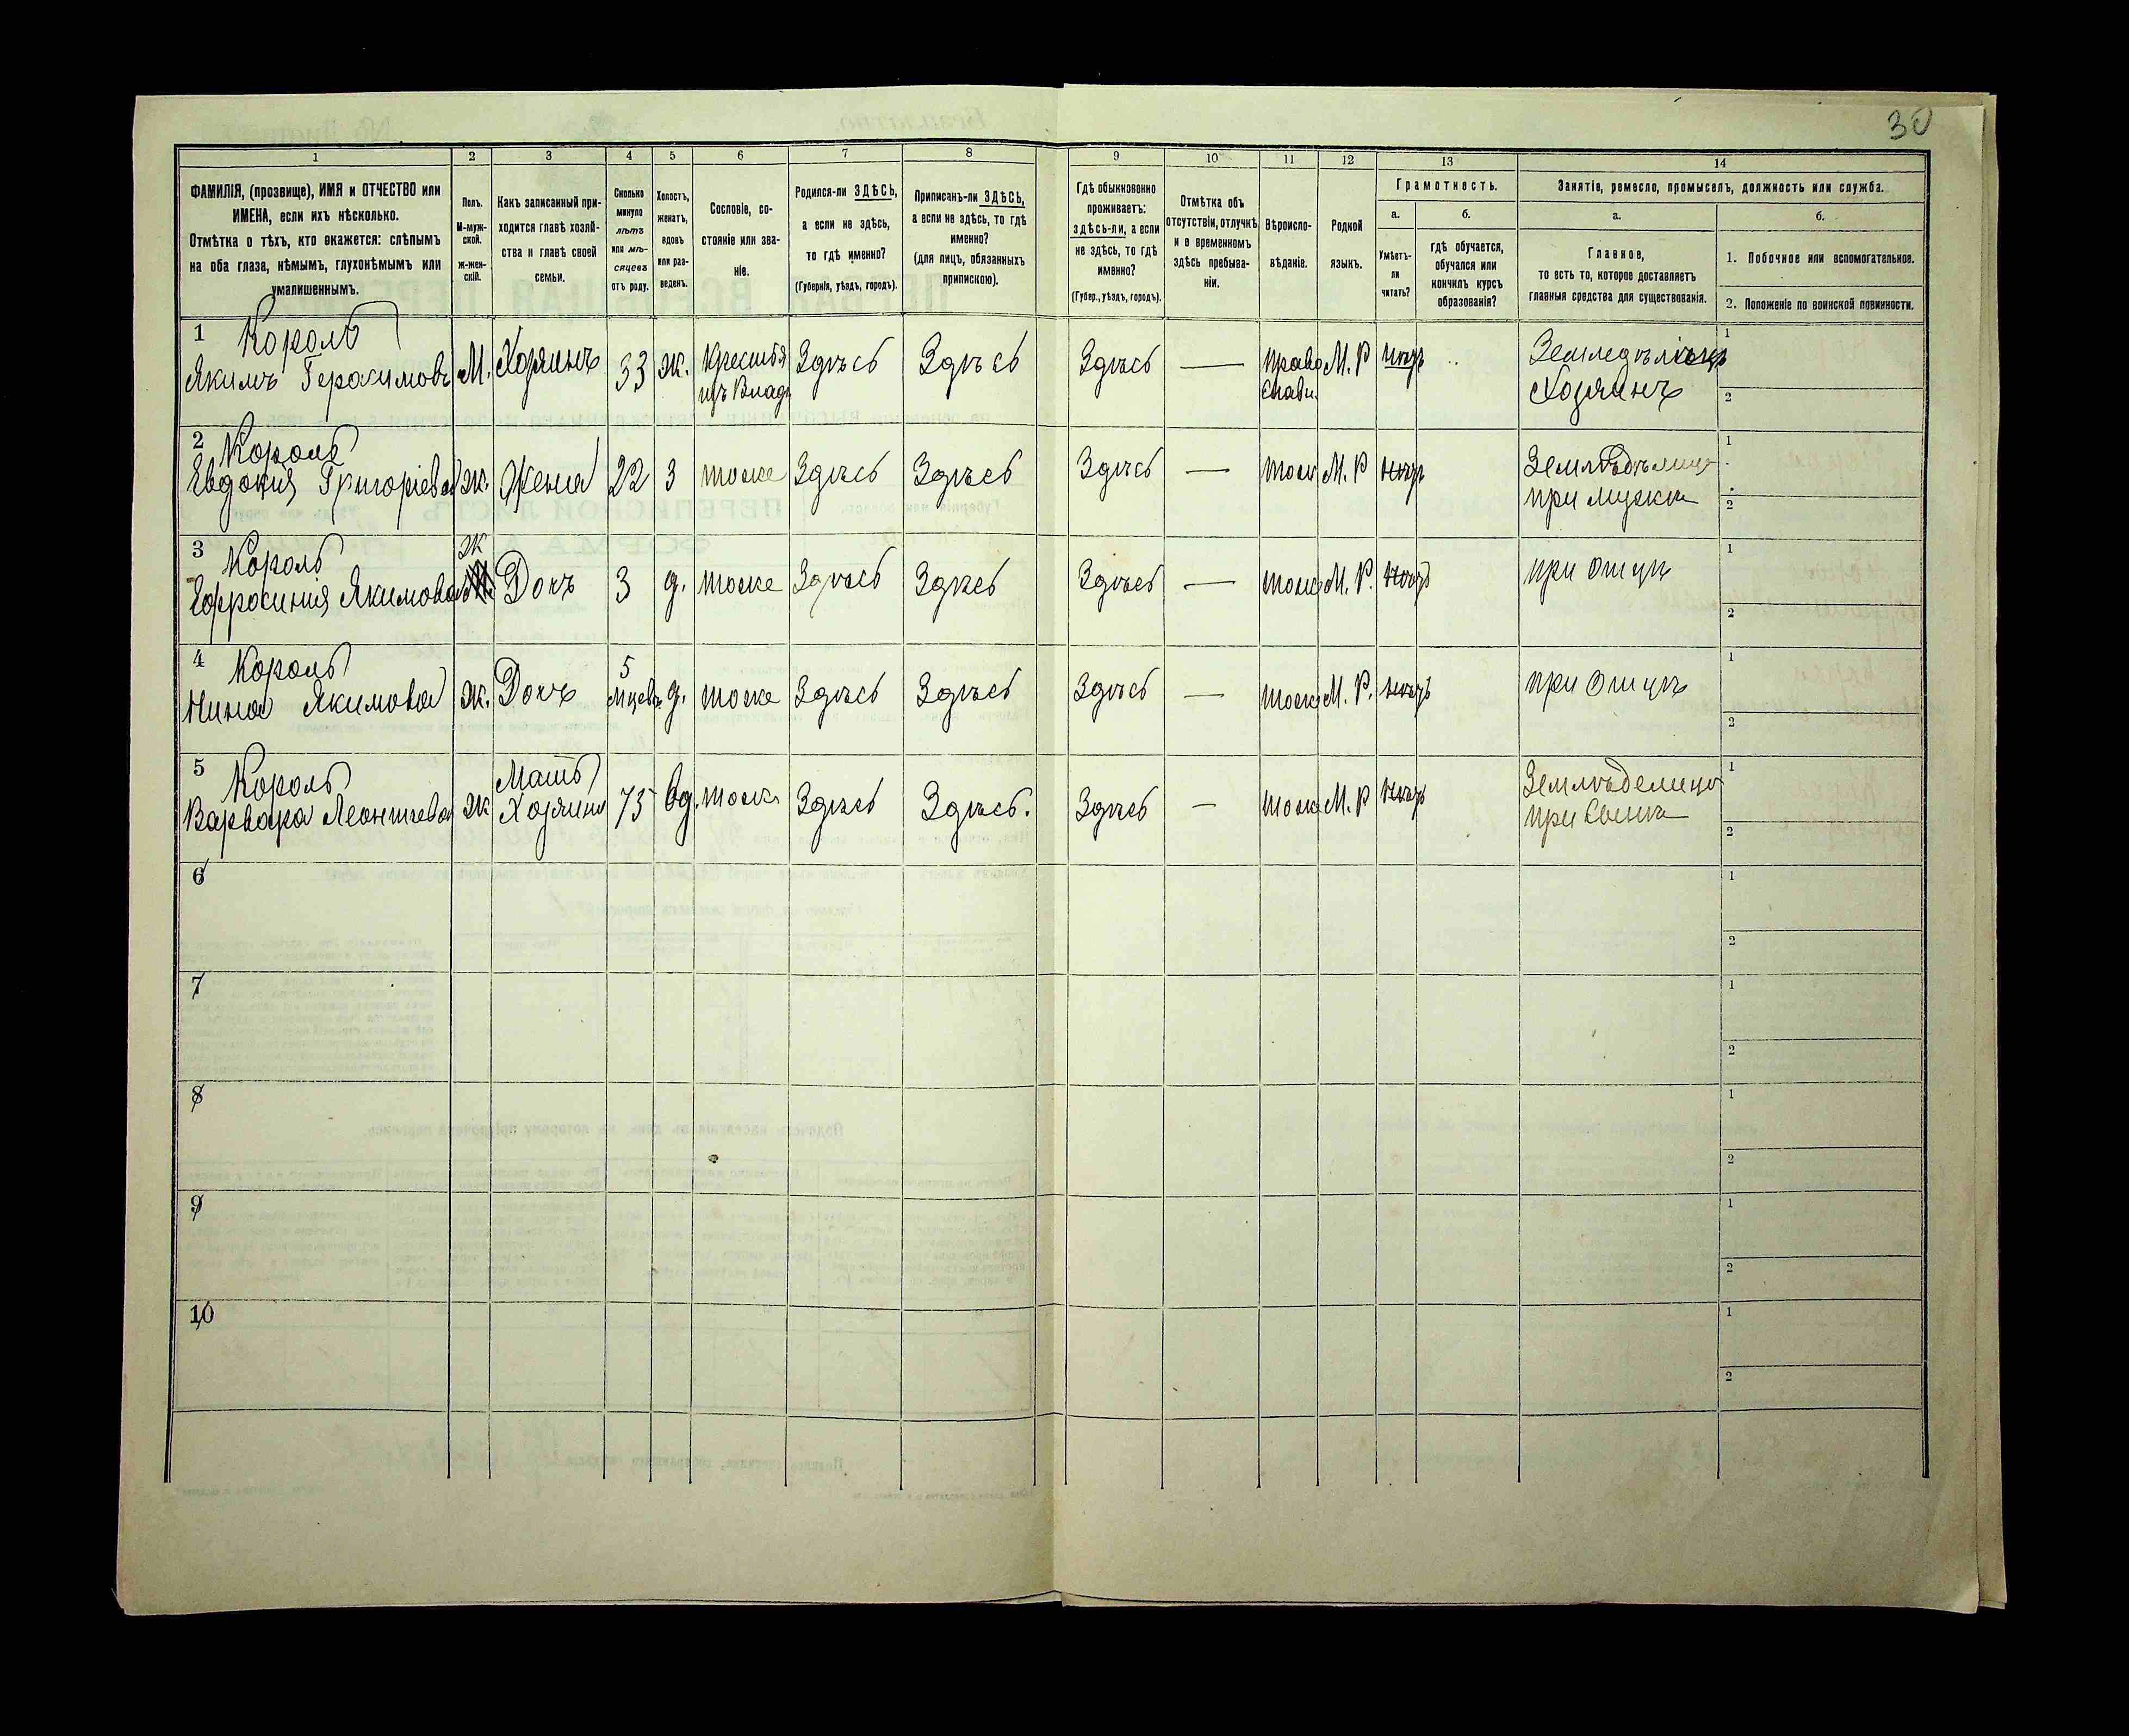 30
1 2 3 4 5 6 7 8 9 10 11 12 13 14
ФАМИЛІЯ, (прозвище), ИМЯ и ОТЧЕСТВО или
ИМЕНА, если ихъ нѣсколько.
Отмѣтка о тѣхъ, кто окажется: слѣпымъ
на оба глаза, нѣмымъ, глухонѣмымъ или
умалишеннымъ.
Полъ.
М-муж-
ской.
ж-жен-
скій.
Какъ записанный при-
ходится главѣ хозяй-
ства и главѣ своей
семьи.
Сколько
минуло
лѣтъ
или мѣ-
сяцевъ
отъ роду.
Холостъ,
женатъ,
вдовъ
или раз-
веденъ.
Сословіе, со-
стояніе или зва-
ніе.
Родился-ли ЗДѢСЬ,
а если не здѣсь,
то гдѣ именно?
(Губернія, уѣздъ, городъ).
Приписанъ-ли ЗДѢСЬ,
а если не здѣсь, то гдѣ
именно?
(для лицъ, обязанныхъ
припискою).
Гдѣ обыкновенно
проживаетъ:
здѣсь-ли, а если
не здѣсь, то гдѣ
именно?
(Губер., уѣздъ, городъ).
Отмѣтка объ
отсутствіи, отлучкѣ
и о временномъ
здѣсь пребыва-
ніи.
Вѣроиспо-
вѣданіе.
Родной
языкъ.
Грамотность.
а.
Умѣетъ-
ли
читать?
б.
гдѣ обучается,
обучался или
кончилъ курсъ
образованія?
Занятіе, ремесло, промыселъ, должность или служба.
а.
Главное,
то есть то, которое доставляетъ
главныя средства для существованія.
б.
1. Побочное или вспомогательное.
2. Положеніе по воинской повинности.
1 Король
Якимъ Герасимовъ М. Хозяинъ 33 ж. Крестья Здѣсь Здѣсь Здѣсь — Право М. Р нѣтъ Земледѣлецъ 1
изъ Влад. слави. Хозяинъ 2
2 Король
Евдокия Григоріева ж. Жена 22 З тоже Здѣсь Здѣсь Здѣсь — тож М. Р нѣтъ 1
при мужи 2
3 Король ж
Ефросинія Якимова Дочъ 3 д. тоже Здѣсь Здѣсь Здѣсь — тож М. Р. нѣтъ при отцѣ 1
2
4 Король 5
Нина Якимова ж. Дочъ мцевъ д. тоже Здѣсь Здѣсь Здѣсь — тож М. Р. нѣтъ при Отцѣ 1
2
5 Король Мать 1
Варвара Леонтиева ж Хозяина 75 вд. тоже Здѣсь Здѣсь. Здѣсь — тож М. Р нѣтъ
при Сынѣ 2
6 1
2
7 1
2
8 1
2
9 1
2
10 1
2